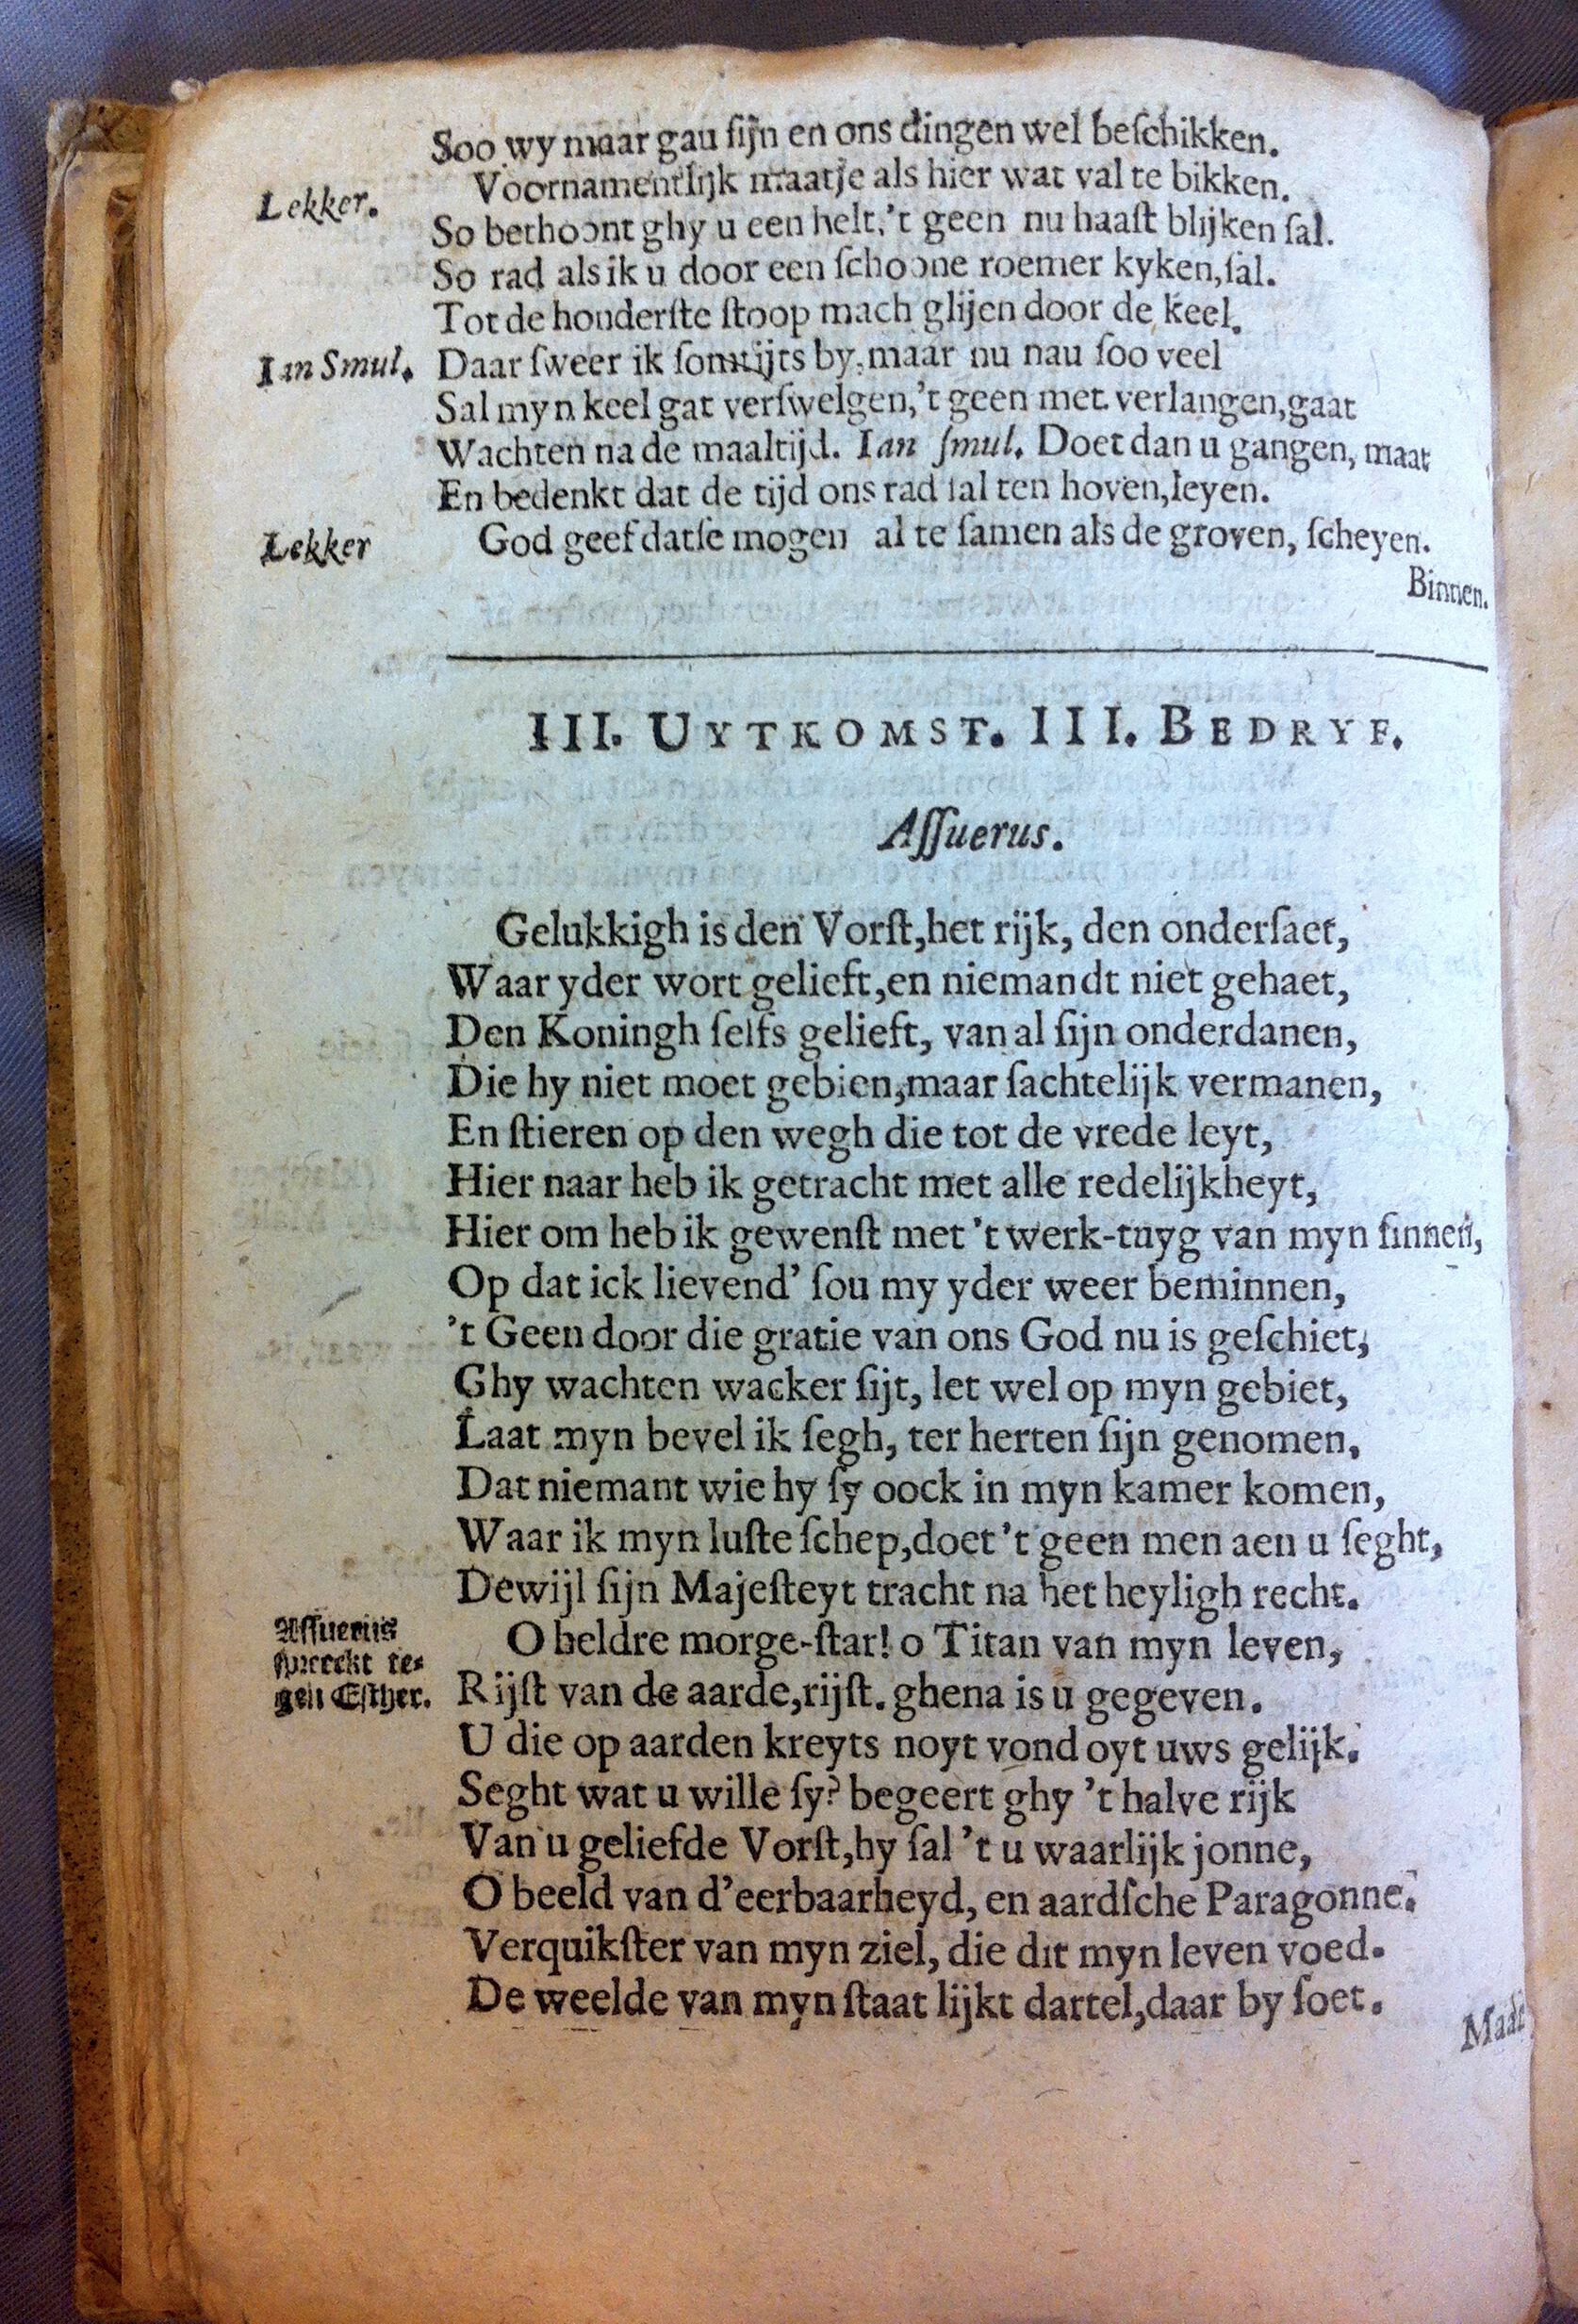 Soo wy maar gau ſijn en ons dingen wel beſchikken.
Lekker. Voornamentlijk maatje als hier wat val te bikken.
So bethoont ghy u een helt, 't geen nu haaſt blijken ſal.
So rad als ik u door een ſchoone roemer kyken, ſal.
Tot de honderſte ſtoop mach glijen door de keel.
Ian Smul. Daar ſweer ik ſomtijts by, maar nu nau ſoo veel
Sal myn keel gat verſwelgen, 't geen met verlangen, gaat
Wachten na de maaltijd. Ian ſmul. Doet dan u gangen, maat
En bedenkt dat de tijd ons rad ſal ten hoven, leyen.
Lekker God geef datſe mogen al te ſamen als de groven, ſcheyen.
Binnen.
III. UYTKOMST. III. BEDRYF.
Aſſuerus.
Gelukkigh is den Vorſt, het rijk, den onderſaet,
Waar yder wort gelieft, en niemandt niet gehaet,
Den Koningh ſelfs gelieft, van al ſijn onderdanen,
Die hy niet moet gebien, maar ſachtelijk vermanen,
En ſtieren op den wegh die tot de vrede leyt,
Hier naar heb ik getracht met alle redelijkheyt,
Hier om heb ik gewenſt met 't werk-tuyg van myn ſinnen,
Op dat ick lievend' ſou my yder weer beminnen,
't Geen door die gratie van ons God nu is geſchiet,
Ghy wachten wacker ſijt, let wel op myn gebiet,
Laat myn bevel ik ſegh, ter herten ſijn genomen,
Dat niemant wie hy ſy oock in myn kamer komen,
Waar ik myn luſte ſchep, doet 't geen men aen u ſeght,
Dewijl ſijn Majeſteyt tracht na het heyligh recht.
Aſſuerus ſpreekt te-gen Eſther.
O heldre morge-ſtar! o Titan van myn leven,
Rijſt van de aarde, rijſt. ghena is u gegeven.
U die op aarden kreyts noyt vond oyt uws gelijk.
Seght wat u wille ſy? begeert ghy 't halve rijk
Van u geliefde Vorſt, hy ſal 't u waarlijk jonne,
O beeld van d'eerbaarheyd, en aardſche Paragonne.
Verquikſter van myn ziel, die dit myn leven voed.
De weelde van myn ſtaat lijkt dartel, daar by ſoet.